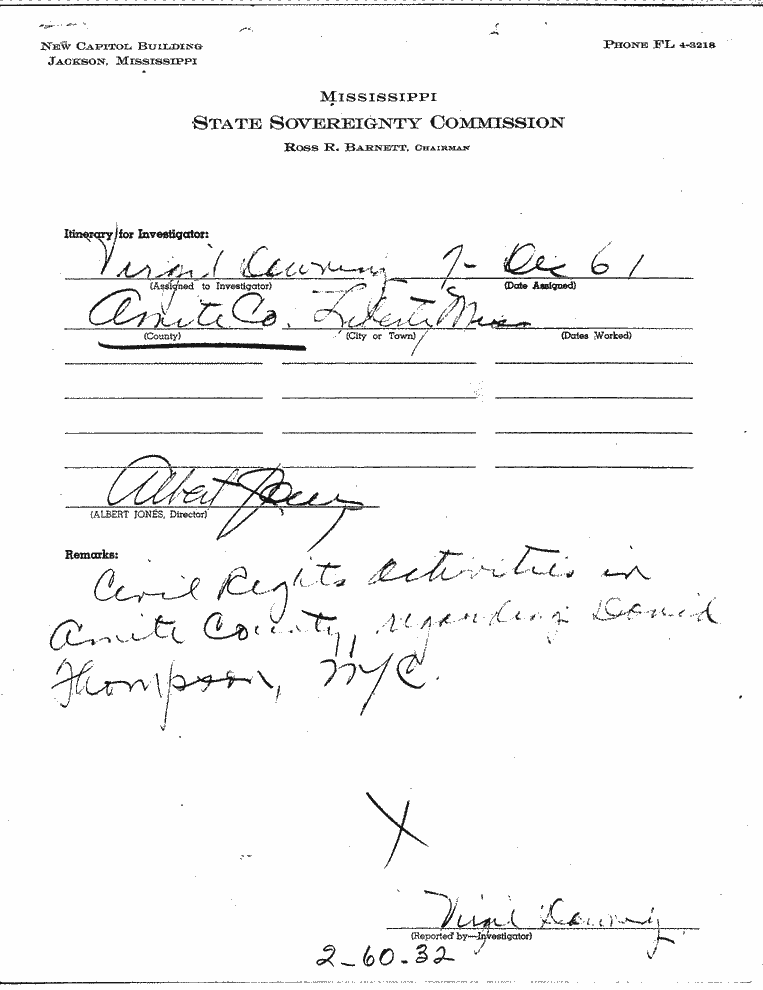 NEW CAPITOL BUILDING
JACKSON, MISSISSIPPI
PHONE FL 4-3218
MISSISSIPPI
STATE SOVEREIGNTY COMMISSION
ROSS R. BARNETT, CHAIRMAN
Itinerary for Investigator:
Virgil Downing 7- Dec 61
(Assigned to Investigator) (Date Assigned)
Amite Co. Liberty Miss
(County) (City or Town) (Dates Worked)
Albert Jones
(ALBERT JONES, Director)
Remarks:
Civil Rights activities in
Amite County, regarding David
Thompson, N/C.
X
Virgil Downing
(Reported by—Investigator)
2-60-32